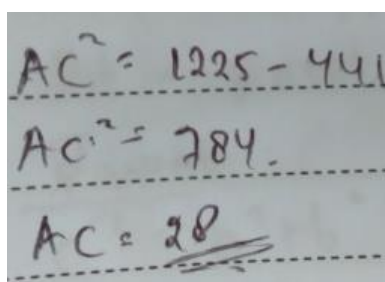 AC² = 1225 - 441
AC² = 784.
AC = 28